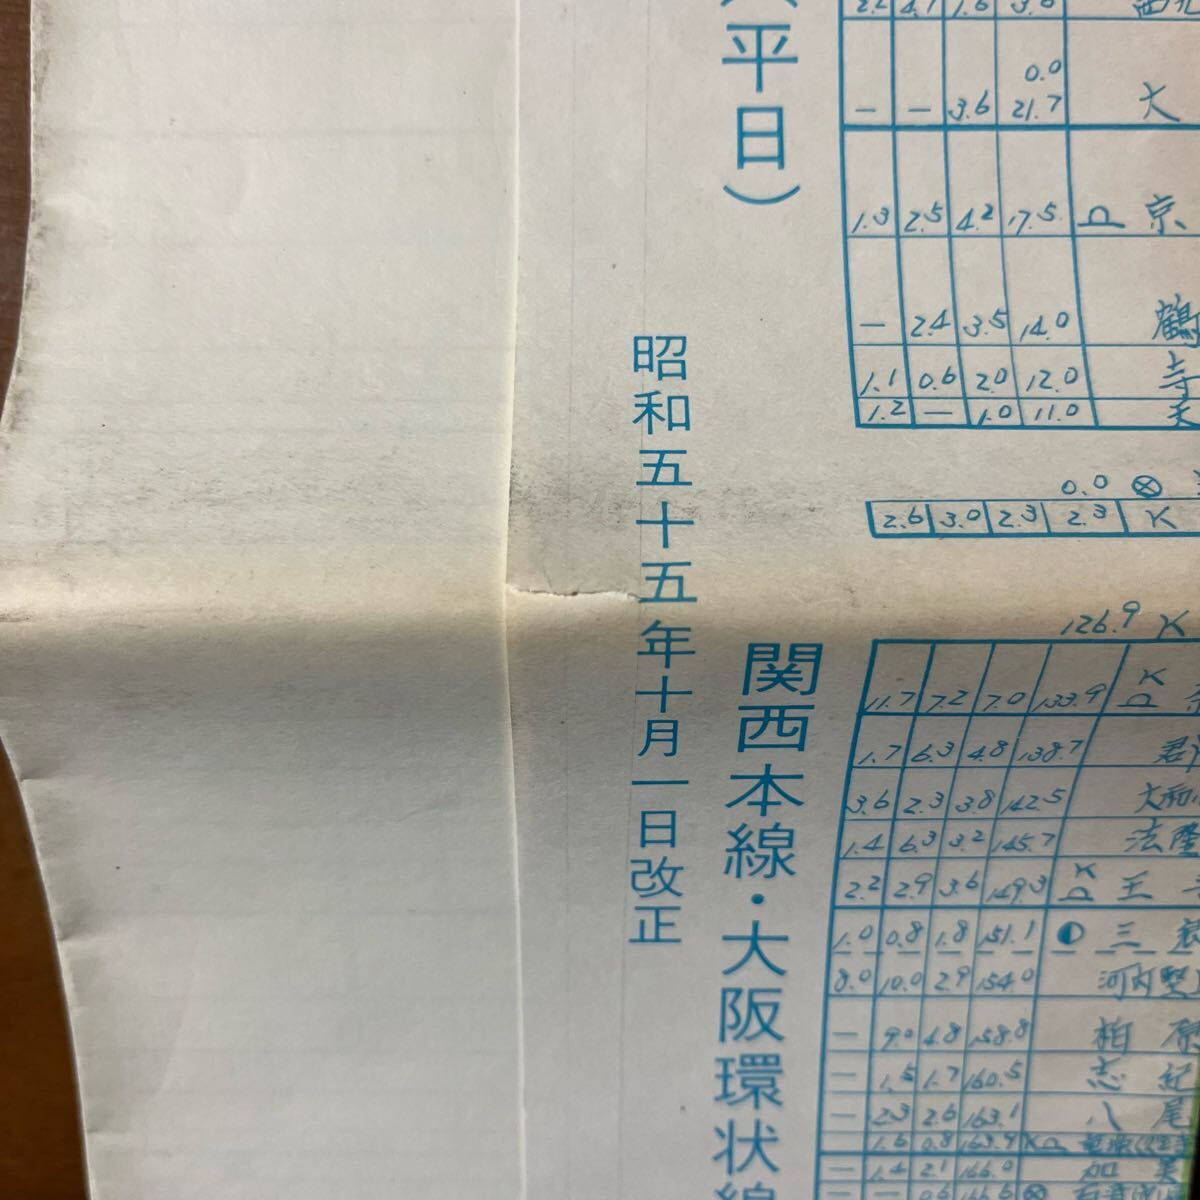 （平日）
昭和五十五年十月一日改正
関西本線・大阪環状線
2.2 4.1 1.6 3.6
0.0
— — 3.6 21.7 大
1.3 2.5 4.2 17.5 京
— 2.4 3.5 14.0 鶴
1.1 0.6 2.0 12.0 寺
1.2 — 1.0 11.0 天
0.0
2.6 3.0 2.3 2.3 K
126.9 K
11.7 7.2 7.0 133.9 K
1.7 6.3 4.8 138.7 郡
3.6 2.3 3.8 142.5 大和
1.4 6.3 3.2 145.7 法隆
2.2 2.9 3.6 149.3 K 王
1.0 0.8 1.8 151.1 三
8.0 10.0 2.9 154.0 河内堅
— 9.0 4.8 158.8 柏原
— 1.5 1.7 160.5 志紀
— 2.3 2.6 163.1 八尾
1.6 0.8 163.9 K
— 1.4 2.1 166.0 加美
— — 0.6 166.6